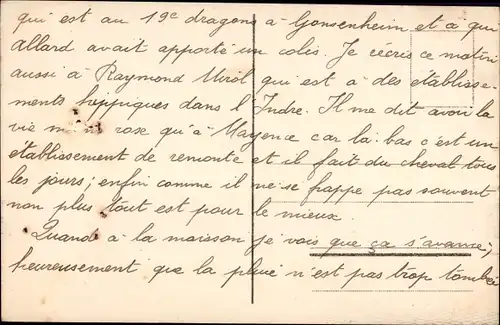 qui est au 19e dragons à Gonsenheim et à qui
allard avait apporté un colis. Je écris ce matin
aussi à Raymond qui est à des établisse-
ments hippiques dans l'Indre. Il me dit avoir la
vie moins rose qu'à Mayence car là-bas c'est un
établissement de remonte et il fait du cheval tous
les jours; enfin comme il ne se frappe pas souvent
non plus tout est pour le mieux.
Quand à la maison je vois que ça s'avance;
heureusement que la pluie n'est pas trop tombée